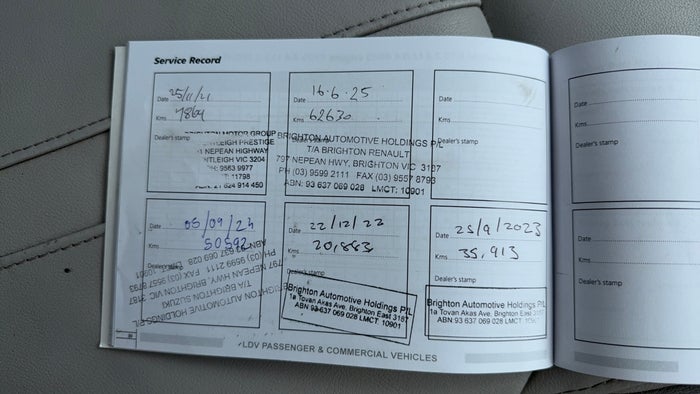 Service Record
Date 25/11/21
Kms 7864
Dealer's stamp
BRIGHTON MOTOR GROUP
BENTLEIGH PRESTIGE
NEPEAN HIGHWAY
BENTLEIGH VIC 3204
PH: 9563 9977
11798
624 914 450
Date 16.6.25
Kms 62630
BRIGHTON AUTOMOTIVE HOLDINGS P/L
T/A BRIGHTON RENAULT
797 NEPEAN HWY, BRIGHTON VIC 3187
PH (03) 9599 2111 FAX (03) 9557 8793
ABN: 93 637 069 028 LMCT: 10901
Date
Kms
Dealer's stamp
Date
Kms
Dealer's stamp
Date 05/09/24
Kms 50592
Dealer's stamp
BRIGHTON AUTOMOTIVE HOLDINGS P/L
T/A BRIGHTON SUZUKI
797 NEPEAN HWY, BRIGHTON VIC 3187
PH (03) 9599 2111 FAX (03) 9557 8793
ABN 93 637 069 028 LMCT 10901
Date 22/12/22
Kms 20,883
Dealer's stamp
Brighton Automotive Holdings P/L
1a Tovan Akas Ave, Brighton East 3187
ABN 93 637 069 028 LMCT: 10901
Date 25/9/2023
Kms 35,913
Dealer's stamp
Brighton Automotive Holdings P/L
1a Tovan Akas Ave, Brighton East 3187
ABN 93 637 069 028 LMCT: 10901
Date
Kms
Dealer's stamp
LDV PASSENGER & COMMERCIAL VEHICLES